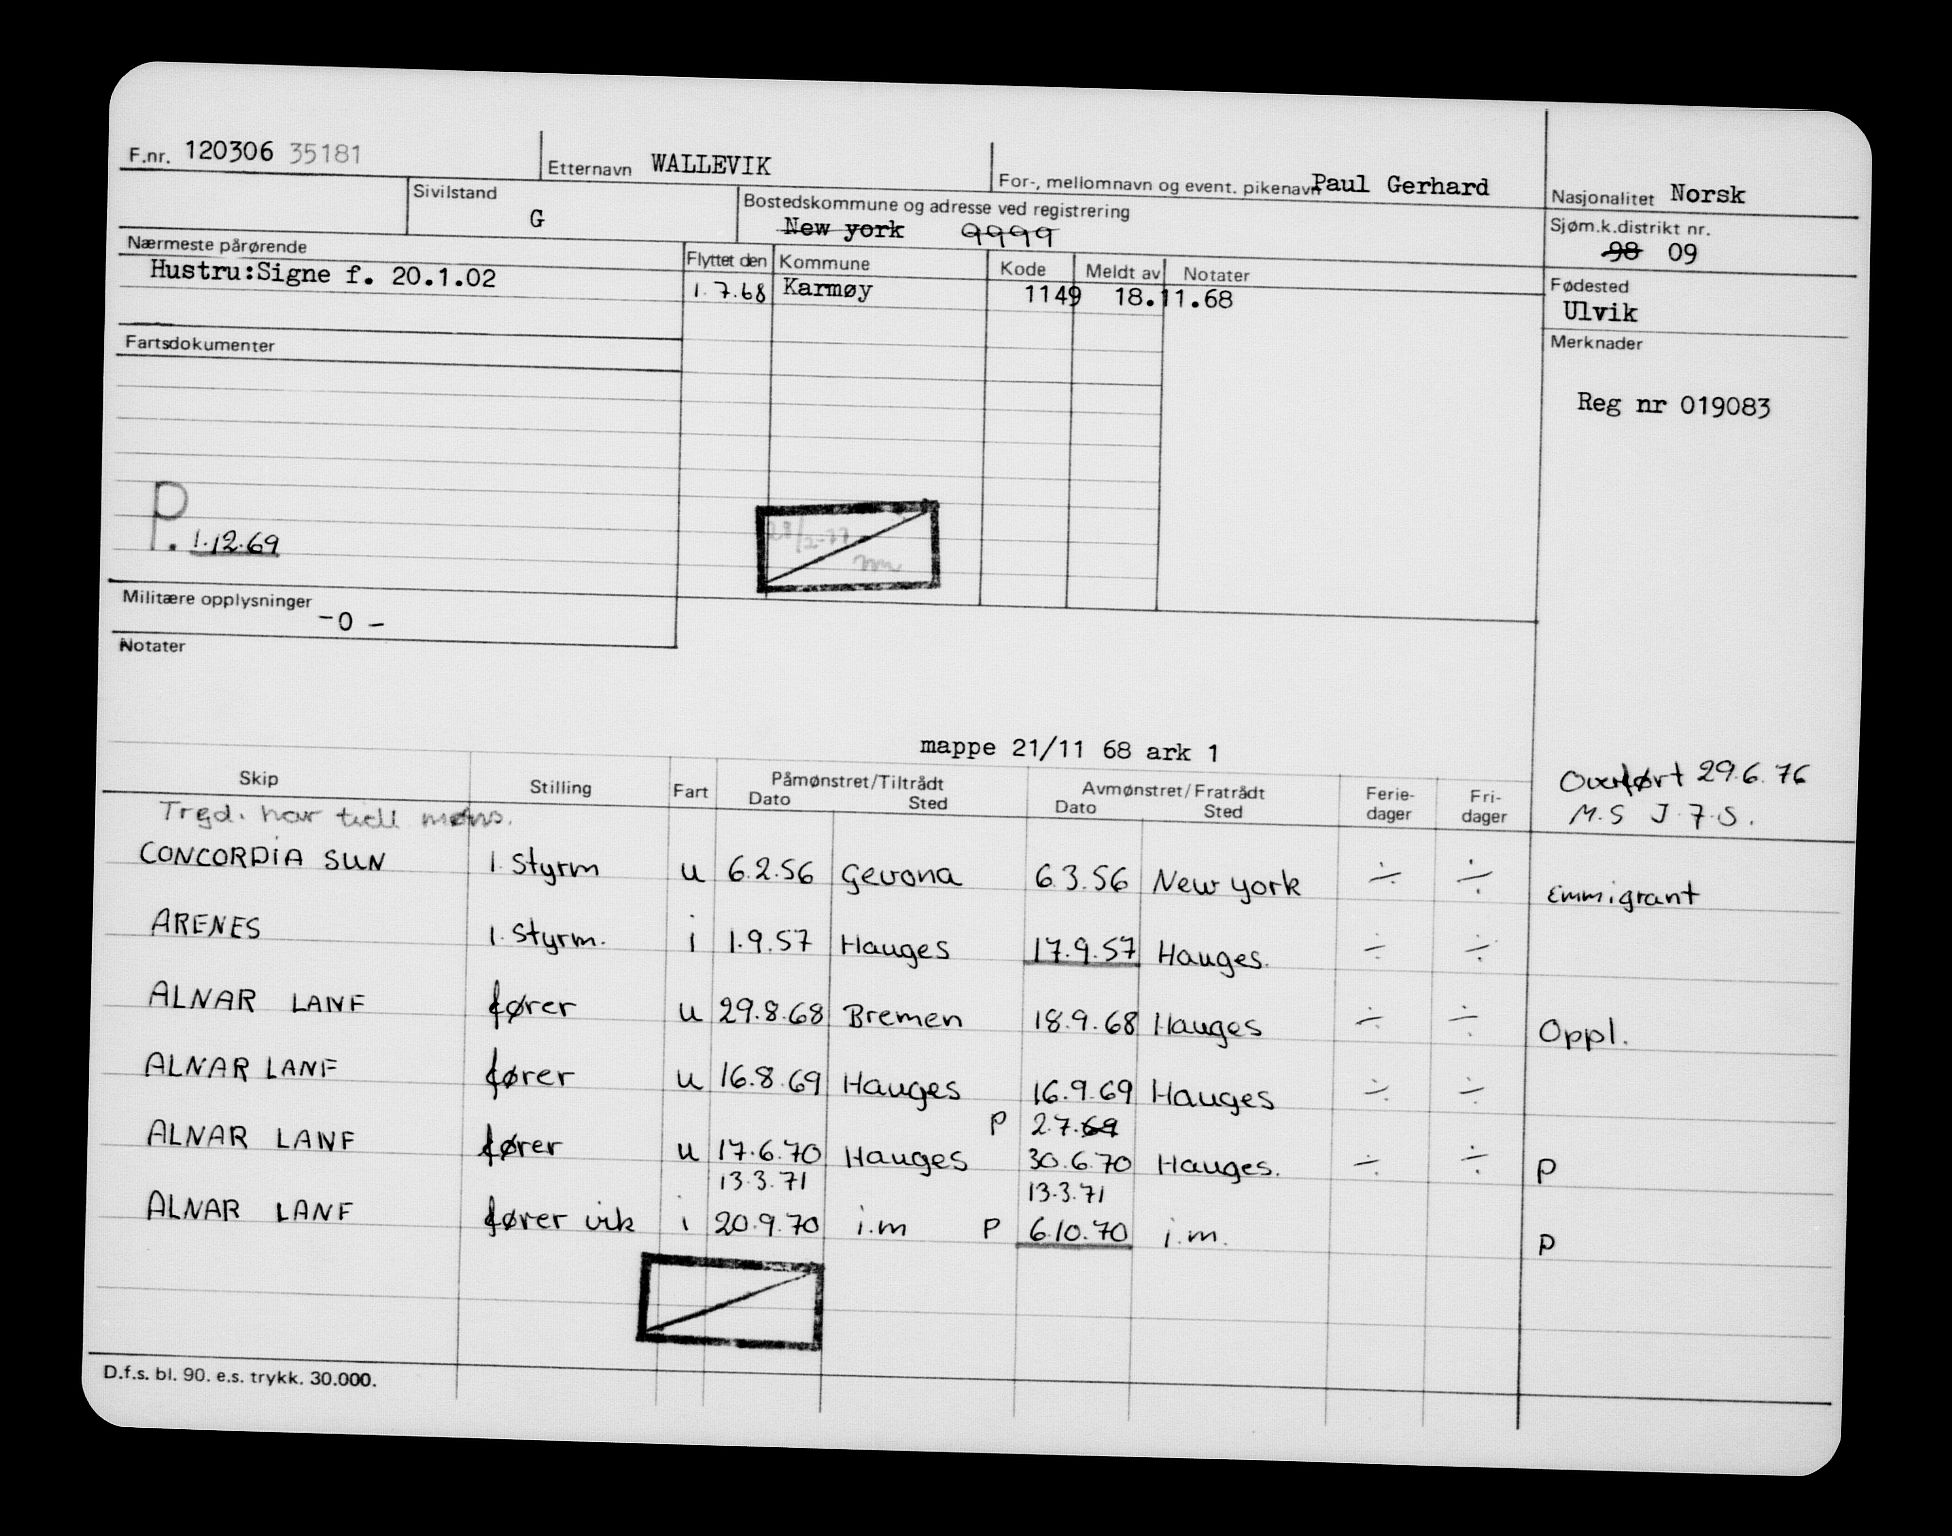 F.nr. 120306 35181 Etternavn WALLEVIK For-, mellomnavn og event. pikenavn Paul Gerhard Nasjonalitet Norsk
Sivilstand G Bostedskommune og adresse ved registrering New york 9999 Sjøm.k.distrikt nr. 98 09
Nærmeste pårørende Flyttet den Kommune Kode Meldt av Notater Fødested
Hustru:Signe f. 20.1.02 1.7.68 Karmøy 1149 18.11.68 Ulvik
Fartsdokumenter Merknader
Reg nr 019083
P. 1.12.69
Militære opplysninger
-0 -
Notater
mappe 21/11 68 ark 1
Overført 29.6.76
M.S J.7.S.
Skip Stilling Fart Påmønstret/Tiltrådt Dato Sted Avmønstret/Fratrådt Dato Sted Ferie-dager Fri-dager
Tred. har tidl møns.
CONCORDIA SUN 1. Styrm u 6.2.56 Gevona 6.3.56 New york ÷ ÷ Emmigrant
ARENES 1. Styrm. i 1.9.57 Hauges 17.9.57 Hauges. ÷ ÷
ALNAR LANF fører u 29.8.68 Bremen 18.9.68 Hauges ÷ ÷ Oppl.
ALNAR LANF fører u 16.8.69 Hauges 16.9.69 Hauges ÷ ÷
P 2.7.69
ALNAR LANF fører u 17.6.70 Hauges 30.6.70 Hauges. ÷ ÷ P
13.3.71 13.3.71
ALNAR LANF fører vik i 20.9.70 i.m P 6.10.70 i.m. P
D.f.s. bl. 90. e.s. trykk. 30.000.